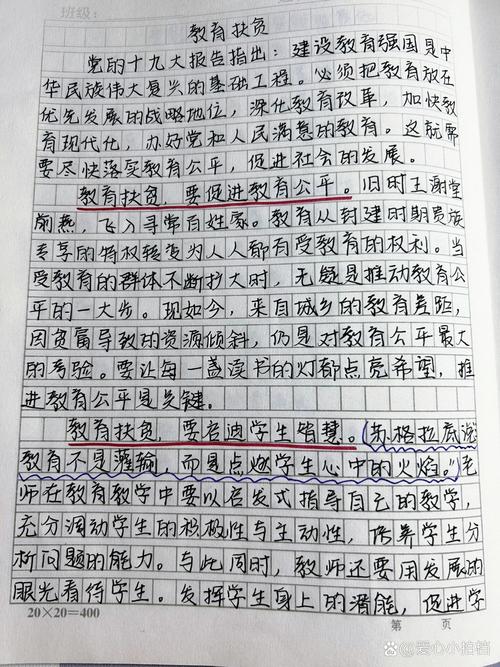 班级：
教育扶贫
党的十九大报告指出：建设教育强国是中
华民族伟大复兴的基础工程。必须把教育放在
优先发展的战略地位，深化教育改革，加快教
育现代化，办好党和人民满意的教育。这就需
要尽快落实教育公平，促进社会的发展。
教育扶贫，要促进教育公平。旧时王谢堂
前燕，飞入寻常百姓家。教育从封建时期贵族
专享的特权转变为人人都有受教育的权利。当
受教育的群体不断扩大时，无疑是推动教育公
平的一大步。现如今，来自城乡的教育差距，
因贫富导致的资源倾斜，仍是对教育公平最大
的考验。要让每一盏读书的灯都点亮希望，推
进教育公平是关键。
教育扶贫，要启迪学生智慧。(苏格拉底说
教育不是灌输，而是点燃学生心中的火焰。"老
师在教育教学中要以启发式指导自己的教学，
充分调动学生的积极性与主动性，培养学生分
析问题的能力。与此同时，教师还要用发展的
眼光看待学生。发挥学生身上的潜能，促进学
20×20=400
第 页
爱心小拍档